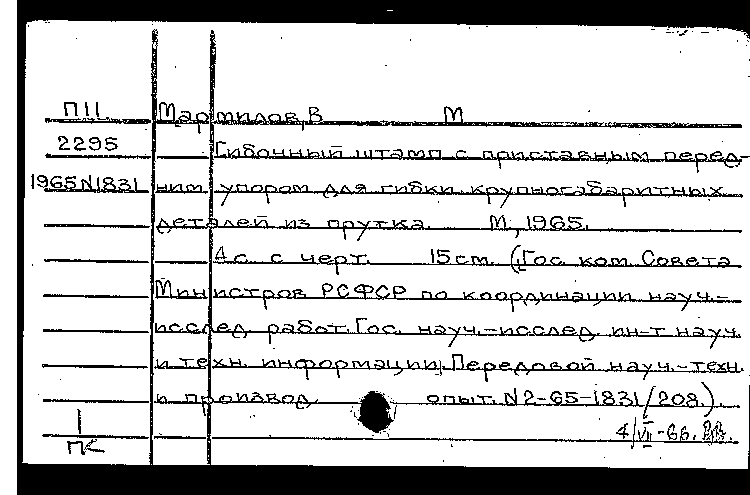 П11 Мармилов, В М
2295 Гибочный штамп с приставным перед-
1965N1831 ним упором для гибки крупногабаритных
деталей из прутка. М, 1965.
4 с. с черт. 15 cm. (Гос. ком. Совета
Министров РСФСР по координации науч.-
исслед. работ. Гос. науч.-исслед. ин-т науч.
и техн. информации). Передовой науч.-техн.
и производ. опыт. N2-65-1831/208.).
4/VII-66.
1
ПК